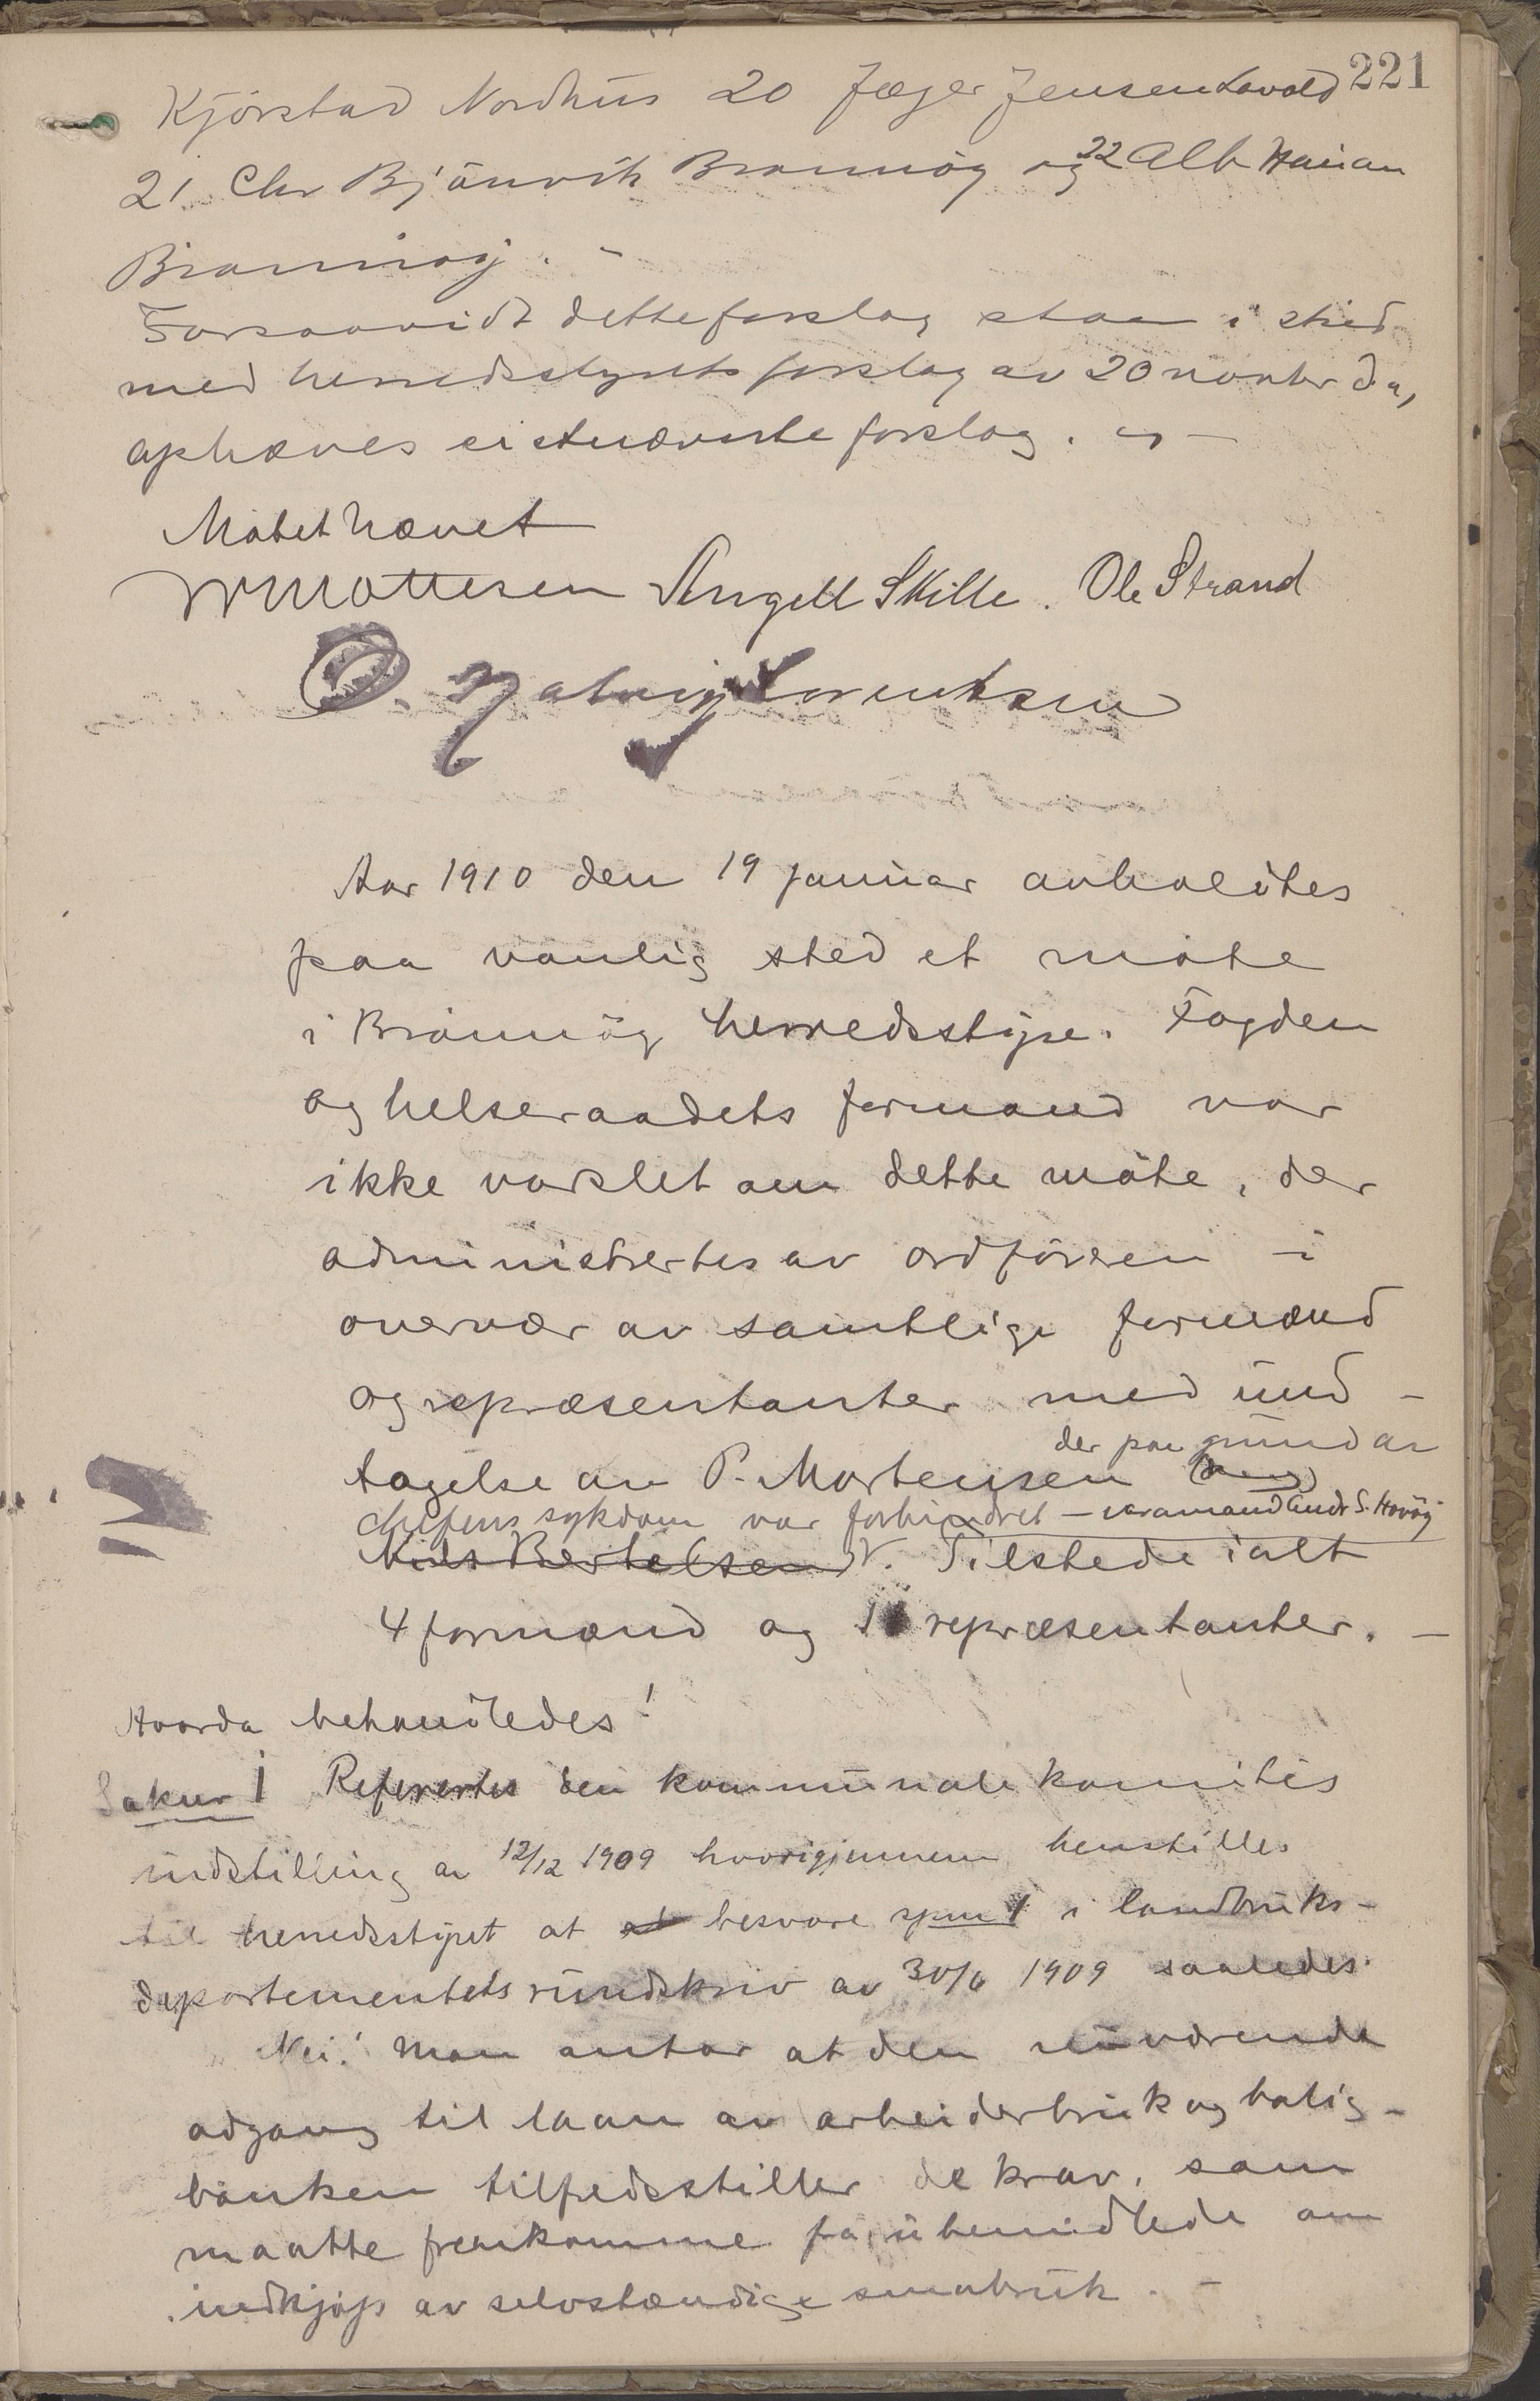 221
Kjörstad Nordhus 20 Jæger Jensen Lavold
21. Chr Bjönvik Brönnöy og 22 Alb Hauan
Brönnöy. -
Forsaavidt dette forslag staar i strid
med herredsstyrets forslag av 20 novbr d.a,
ophæves sistnævnte forslag. -
Mötet hævet
Angell Skille. Ole Strand
O. Natvig Lorentsen
Aar 1910 den 19 januar avholdtes
paa vanlig sted et möte
i Brönnöy herredsstyre. Fogden
og helseraadets formand var
ikke varslet om dette möte, der
administrertes av ordföreren i
overvær av samtlige formænd
og repræsentanter med und-
tagelse av P. Mortensen der paa grund av
chefens sykdom var forhindret - varamand Andr S. Horöy
Nils Bertelsen V. Tilstede ialt
4 formænd og 1 repræsentanter. -
Hvorda behandledes!
Saknr 1 Refererter den kommunale komités
indstilling av 12/12 1909 hvorigjennem henstilles
til herredsstyret at at besvare spm 1 i landbruks-
departementets rundskriv av 30/6 1909 saaledes.
"Nei! Man antar at den nuværende
adgang til laan av arbeiderbruk og bolig-
banken tilfredsstiller de krav, som
maatte fremkomme fra ubemidlede om
indkjöp av selvstændige smabruk. -